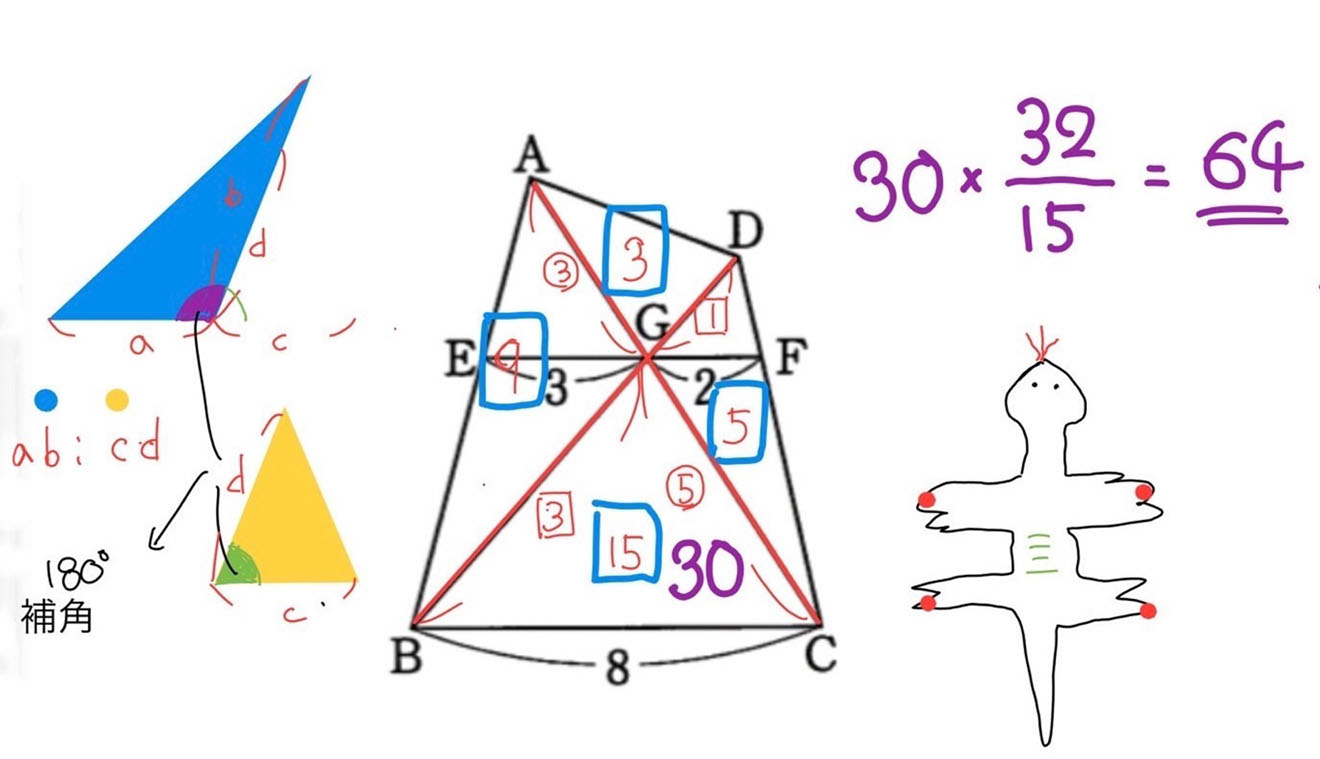 b
d
a
c
ab : cd
d
c
180°
補角
A
3
③
D
1
G
E
9
3
2
F
5
3
15
30
⑤
B
8
C
30 × 32/15 = 64